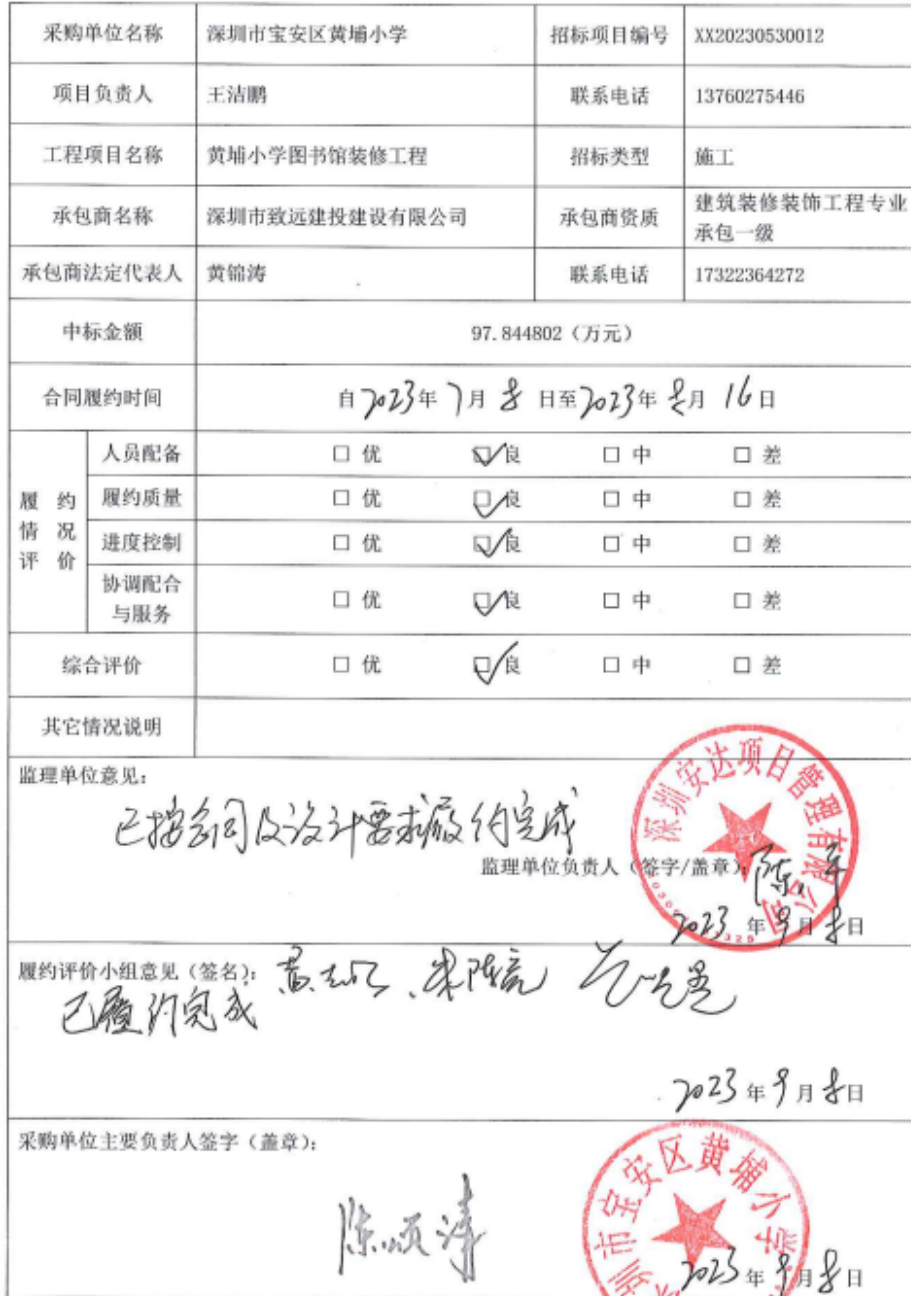 采购单位名称 深圳市宝安区黄埔小学 招标项目编号 XX20230530012
项目负责人 王洁鹏 联系电话 13760275446
工程项目名称 黄埔小学图书馆装修工程 招标类型 施工
承包商名称 深圳市致远建投建设有限公司 承包商资质 建筑装修装饰工程专业
承包一级
承包商法定代表人 黄锦涛 联系电话 17322364272
中标金额 97.844802（万元）
合同履约时间 自2023年7月8日至2023年8月16日
履约情况评价
人员配备 □优 ☑良 □中 □差
履约质量 □优 ☑良 □中 □差
进度控制 □优 ☑良 □中 □差
协调配合
与服务 □优 ☑良 □中 □差
综合评价 □优 ☑良 □中 □差
其它情况说明
监理单位意见：
已按合同及设计要求履约完成
监理单位负责人（签字/盖章）：
深圳安达项目管理有限公司
2023年9月8日
履约评价小组意见（签名）：
已履约完成
2023年9月8日
采购单位主要负责人签字（盖章）：
陈颂涛
深圳市宝安区黄埔小学
2023年9月8日